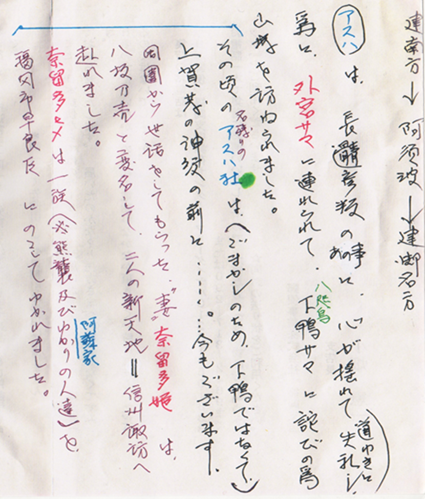 建南方→阿須波→建御名方
アスハは、長髄彦叛のあの事に、心が揺れて失礼し
(道ゆきと)
為に、外宮サマに連れられて、下鴨サマに詫びの為
八咫烏
山城を訪ねられました。
その頃の名残りのアスハ社は、(ごまかしのため、下鴨ではなくて)
上賀茂の神域の前に……。今もございます。
周囲から世話をしてもらった"妻"奈留多姫は、
八坂刀売と変名して、二人の新天地=信州諏訪へ
赴れました。
奈留多ヒメは一族(必熊襲及びゆかりの人達)を
阿蘇家
福岡市早良区にのこしてゆかれました。